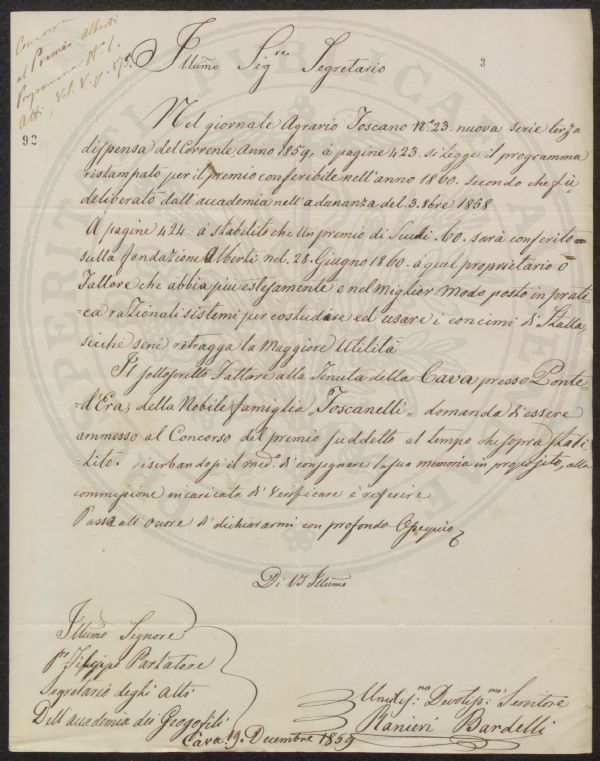 Concorso
al Premio Alberti
Programma N.º 1.
Atti, Vol. V. p.
92
3
Illumo Sigre Segretario
Nel giornale Agrario Toscano Nº 23. nuova serie terza
dispensa del Corrente Anno 1859, à pagine 423. si legge il programma
ristampato per il premio conferibile nell'anno 1860. Secondo che fù
daliberato dall'accademia nell'adunanza del 3. 8bre 1858
A pagine 424 à stabilito che Un premio di Scudi 60. sarà conferito
sulla fondazione Alberti nel 28. Giugno 1860. à quel proprietario ò
Fattore che abbia più estesamente e nel miglior modo posto in prati-
=ca razionali sistemi per costudire ed usare i concimi di Stalla,
sicche sene retragga la Maggiore Utilità
Il sottoscritto Fattore alla Tenuta della Cava presso Ponte-
=d'Era, della Nobile famiglia Toscanelli, domanda di essere
ammesso al Concorso del premio suddetto al tempo che sopra stabi-
lito. riserbandosi il medº. di consegnare la sua memoria in proposito, alla
commissione incaricata di verificare e referire
Passa all'onore di dichiararmi con profondo Ossequio
Di VS Illumo
Illumo Signore
Filippo Parlatore
Segretario deghi Atti
Dell'accademia dei Geogofili
Cava 9. Decembre 1859
Umilis:mo Devotis:mo Servitore
Ranieri Bardelli